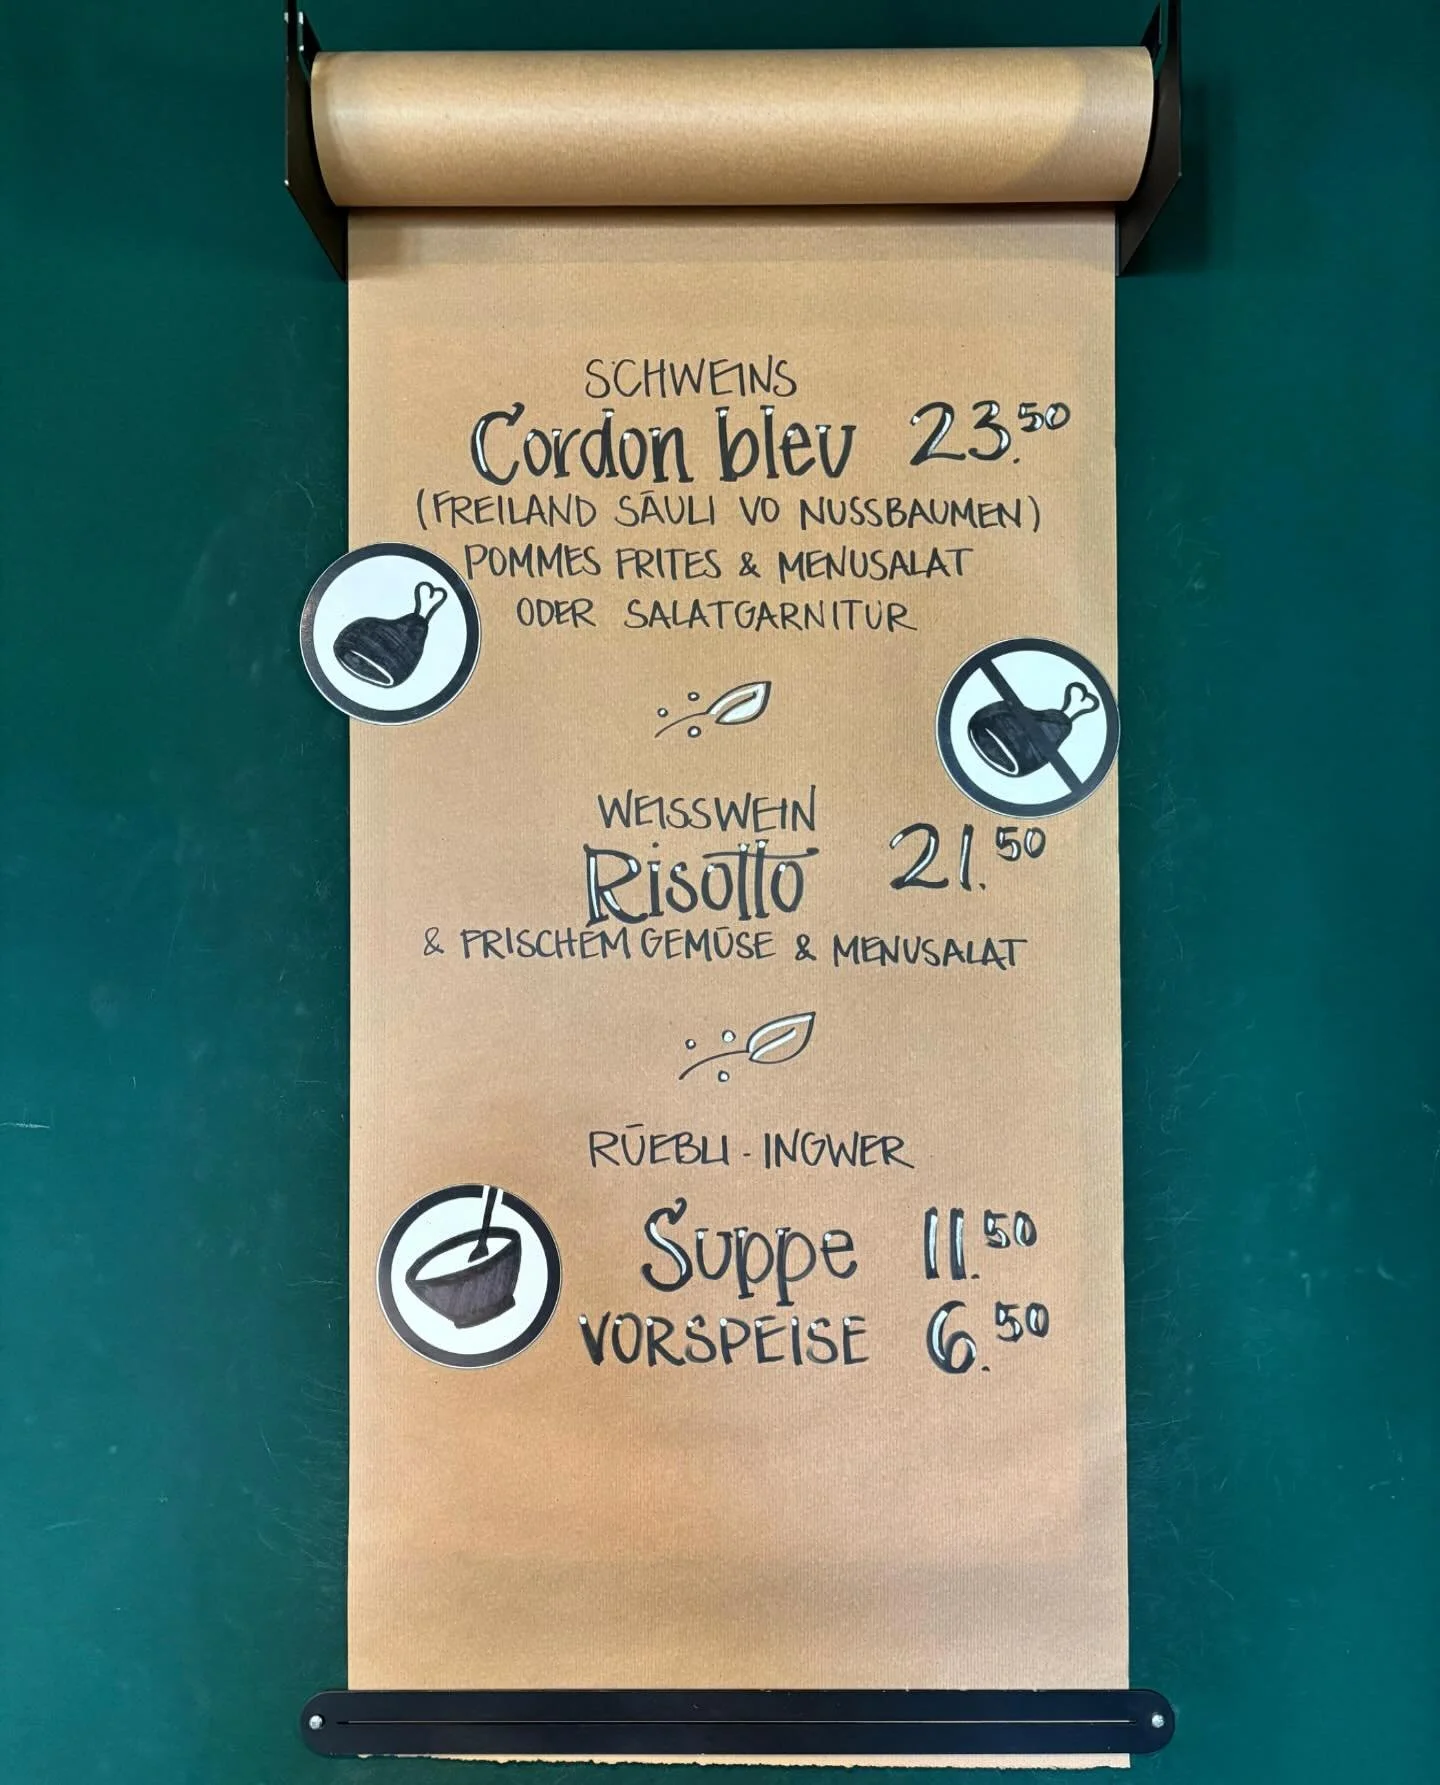 SCHWEINS
Cordon bleu 23.50
(FREILAND SÄULI VO NUSSBAUMEN)
POMMES FRITES & MENUSALAT
ODER SALATGARNITUR
WEISSWEIN
Risotto 21.50
& FRISCHEM GEMÜSE & MENUSALAT
RÜEBLI - INGWER
Suppe 11.50
VORSPEISE 6.50